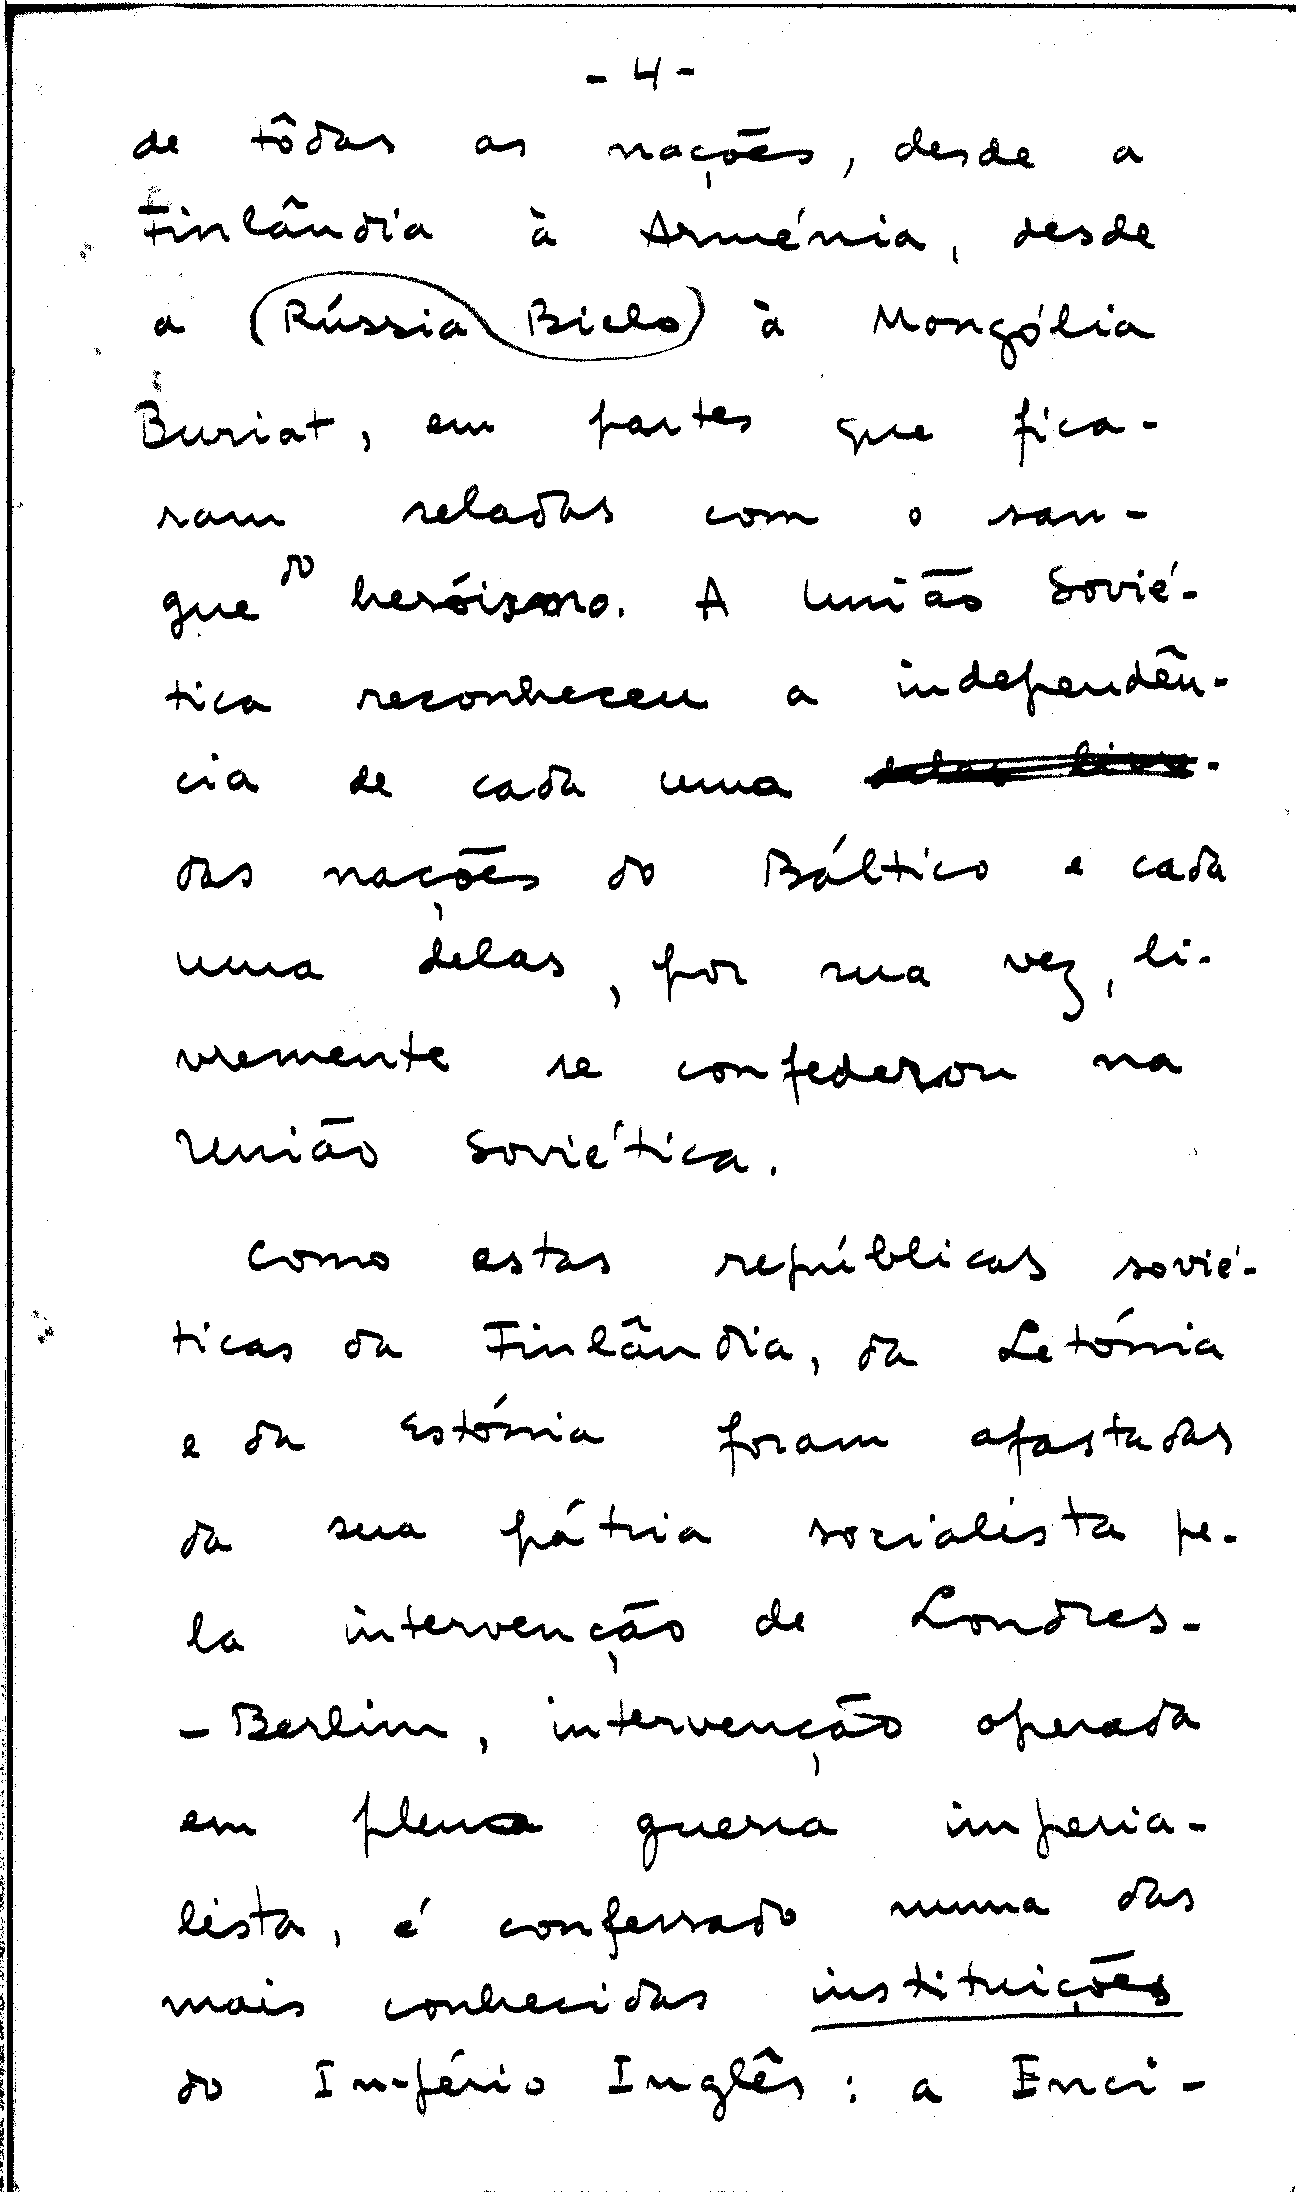 - 4 -
de tôdas as nações, desde a
Finlândia à Arménia, desde
a (Rússia Bielo) à Mongólia
Buriat, em partes que fica-
ram seladas com o san-
gue do heróismo. A União Sovié-
tica reconheceu a independên-
cia de cada uma delas livre-
das nações do Báltico e cada
uma delas, por sua vez, li-
vremente se confederou na
União Soviética.
Como estas repúblicas sovié-
ticas da Finlândia, da Letónia
e da Estónia foram afastadas
da sua pátria socialista pe-
la intervenção de Londres-
-Berlim, intervenção operada
em plena guerra imperia-
lista, é confessado numa das
mais conhecidas instituições
do Império Inglês: a Enci-